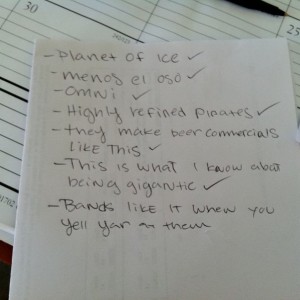 30
- Planet of Ice ✓
- menos el oso ✓
- Omni ✓
- Highly refined Pirates ✓
- they make beer commercials
Like This ✓
- This is what I know about
being gigantic ✓
- Bands like It when you
yell yar at them